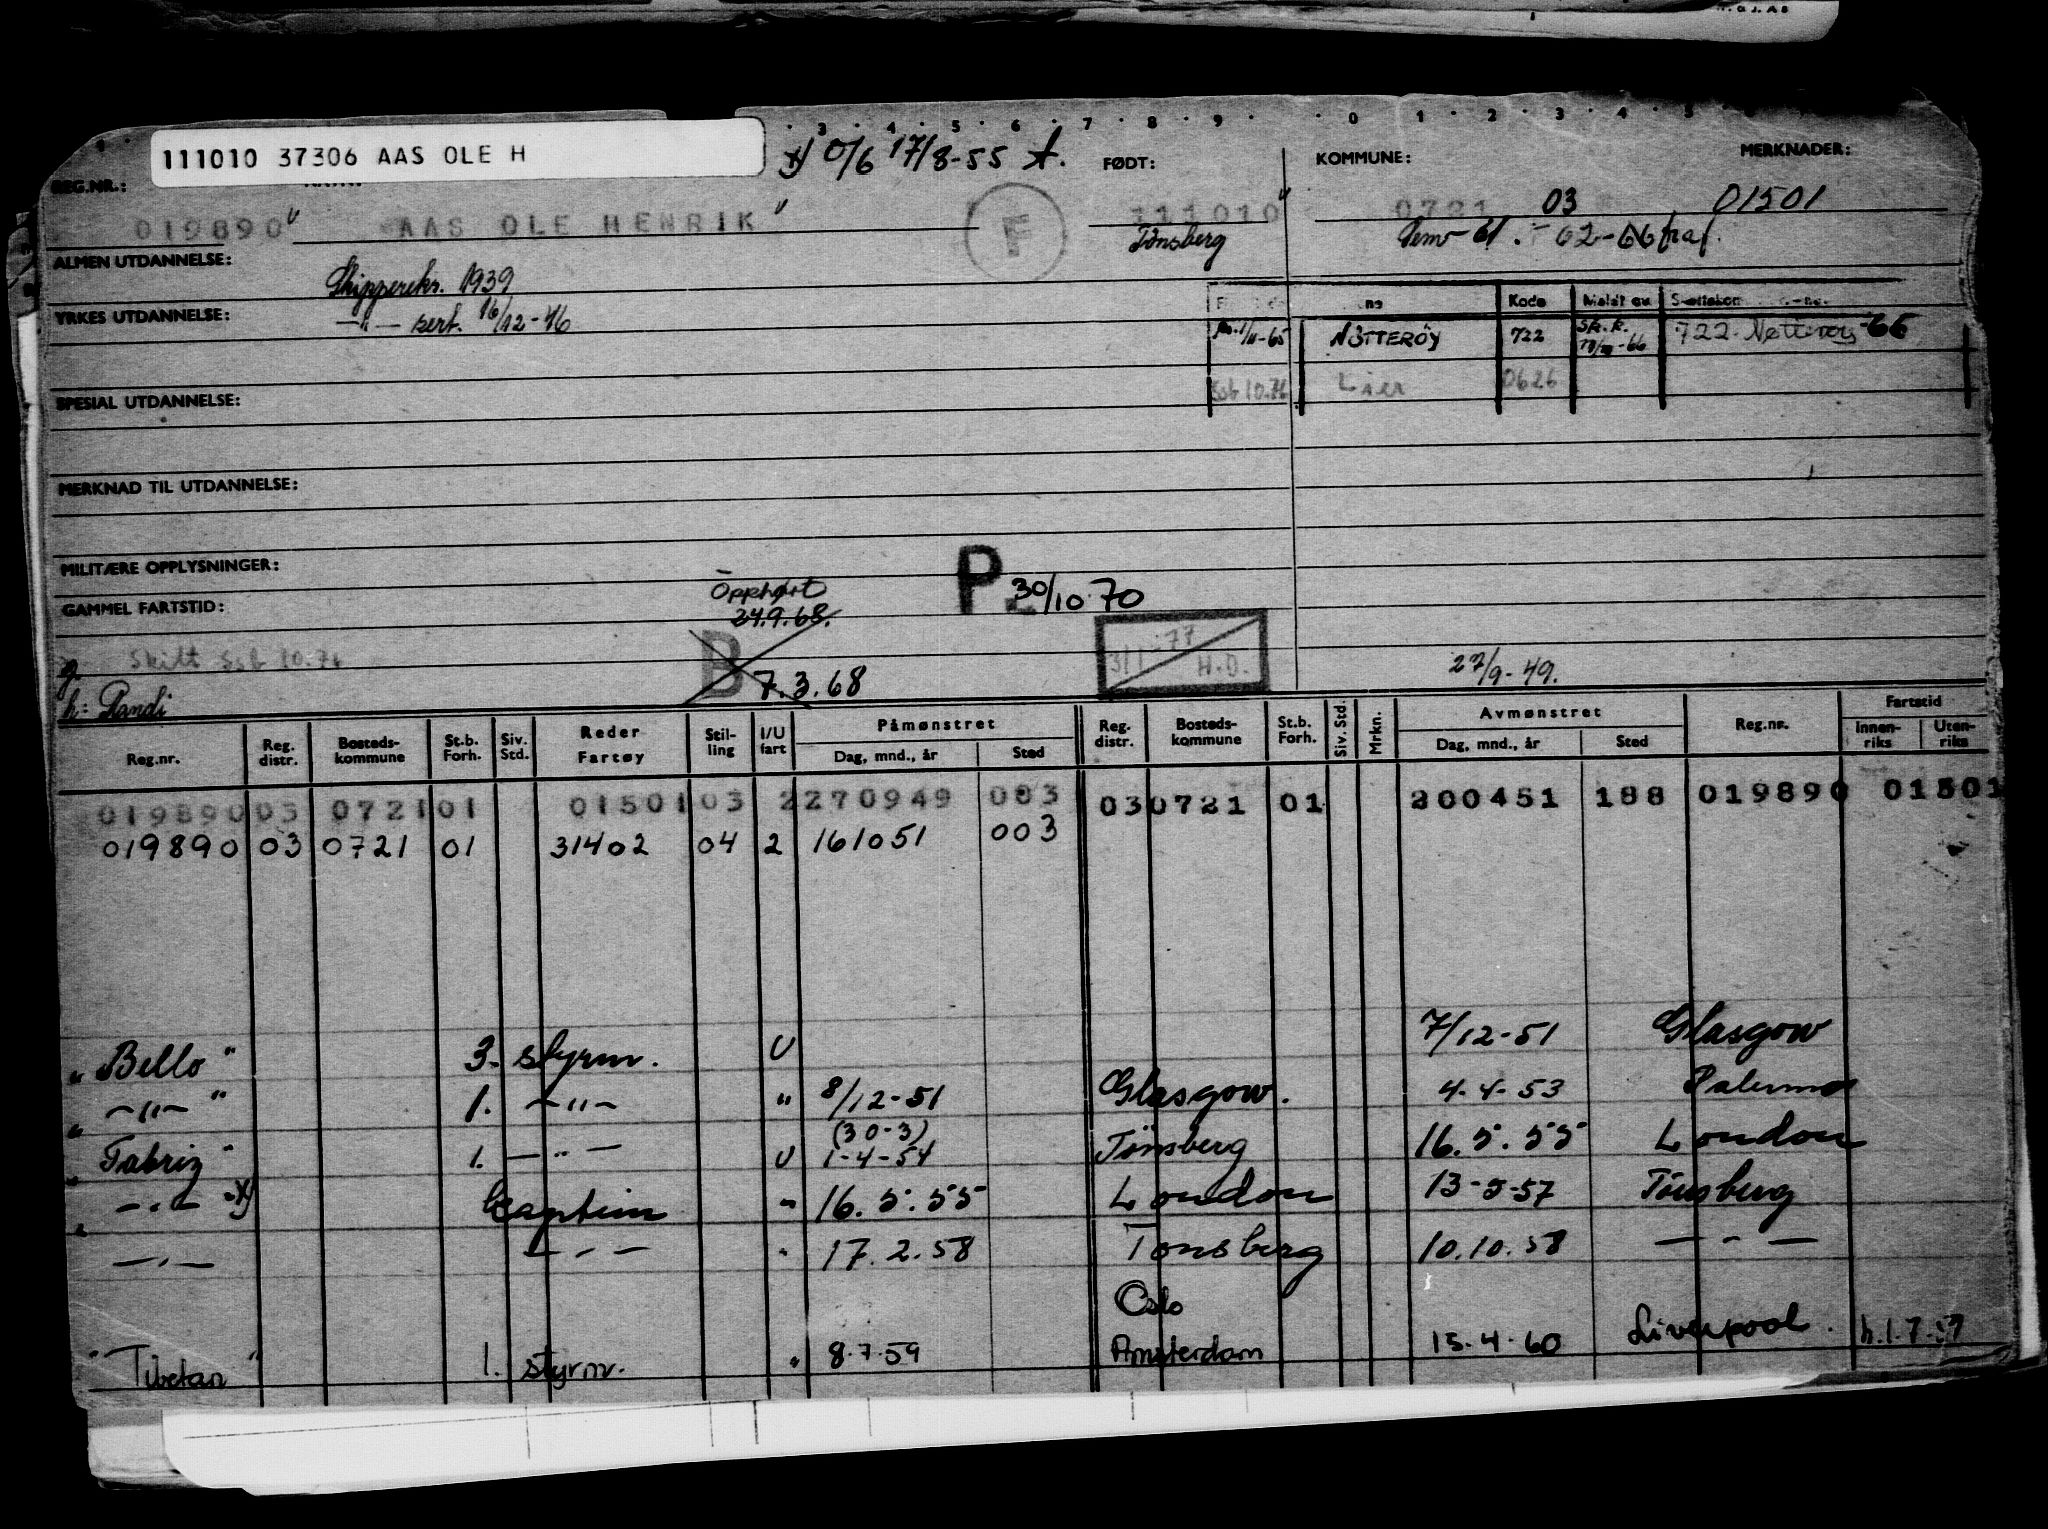 111010 37306 AAS OLE H
0/6 17/8-55 A.
3 4 5 6 7 8 9 0 1 2 3 4 5
REG.NR.:
FØDT:
KOMMUNE:
MERKNADER:
019890 AAS OLE HENRIK F 111010 0721 03 01501
Tönsberg
Sem-61. - 62-66 fraf.
ALMEN UTDANNELSE:
Skippereks. 1939
YRKES UTDANNELSE:
—"— sert. 16/12-46
Kode Meldt av
1/11-65 NÖTTERÖY 722 Sk.k. -66 722 Nötteröy -66
Ssb 10.76 Lier 0626
SPESIAL UTDANNELSE:
MERKNAD TIL UTDANNELSE:
MILITÆRE OPPLYSNINGER:
GAMMEL FARTSTID:
Opphørt
24.9.68.
P 30/10 70
B 7.3.68
3/1-77
H.D.
g. Skilt Ssb 10.76
h: Randi
27/9-49.
Reg.nr. Reg. distr. Bosteds-kommune St.b. Forh. Siv. Std. Reder Fartøy Stil-ling I/U fart Påmønstret Dag, mnd., år Sted Reg. distr. Bosteds-kommune St.b. Forh. Siv. Std. Mrkn. Avmønstret Dag, mnd., år Sted Reg.nr. Fartstid Innen-riks Uten-riks
019890 03 0721 01 01501 03 2 270949 003 03 0721 01 200451 188 019890 01501
019890 03 0721 01 31402 04 2 161051 003
"Bello" 3. styrm. U 7/12-51 Glasgow
" —"— " 1. —"— " 8/12-51 Glasgow. 4-4-53 Palermo
(30-3)
"Tabriz" 1. —"— U 1-4-54 Tönsberg 16.5.55 London
" —"— " x) Captein " 16.5.55 London 13-5-57 Tönsberg
—"— —"— " 17.2.58 Tönsberg 10.10.58 —"—
Oslo
"Tibetan" 1. styrm. " 8.7.59 Amsterdam 15.4-60 Liverpool. h.1.7.59